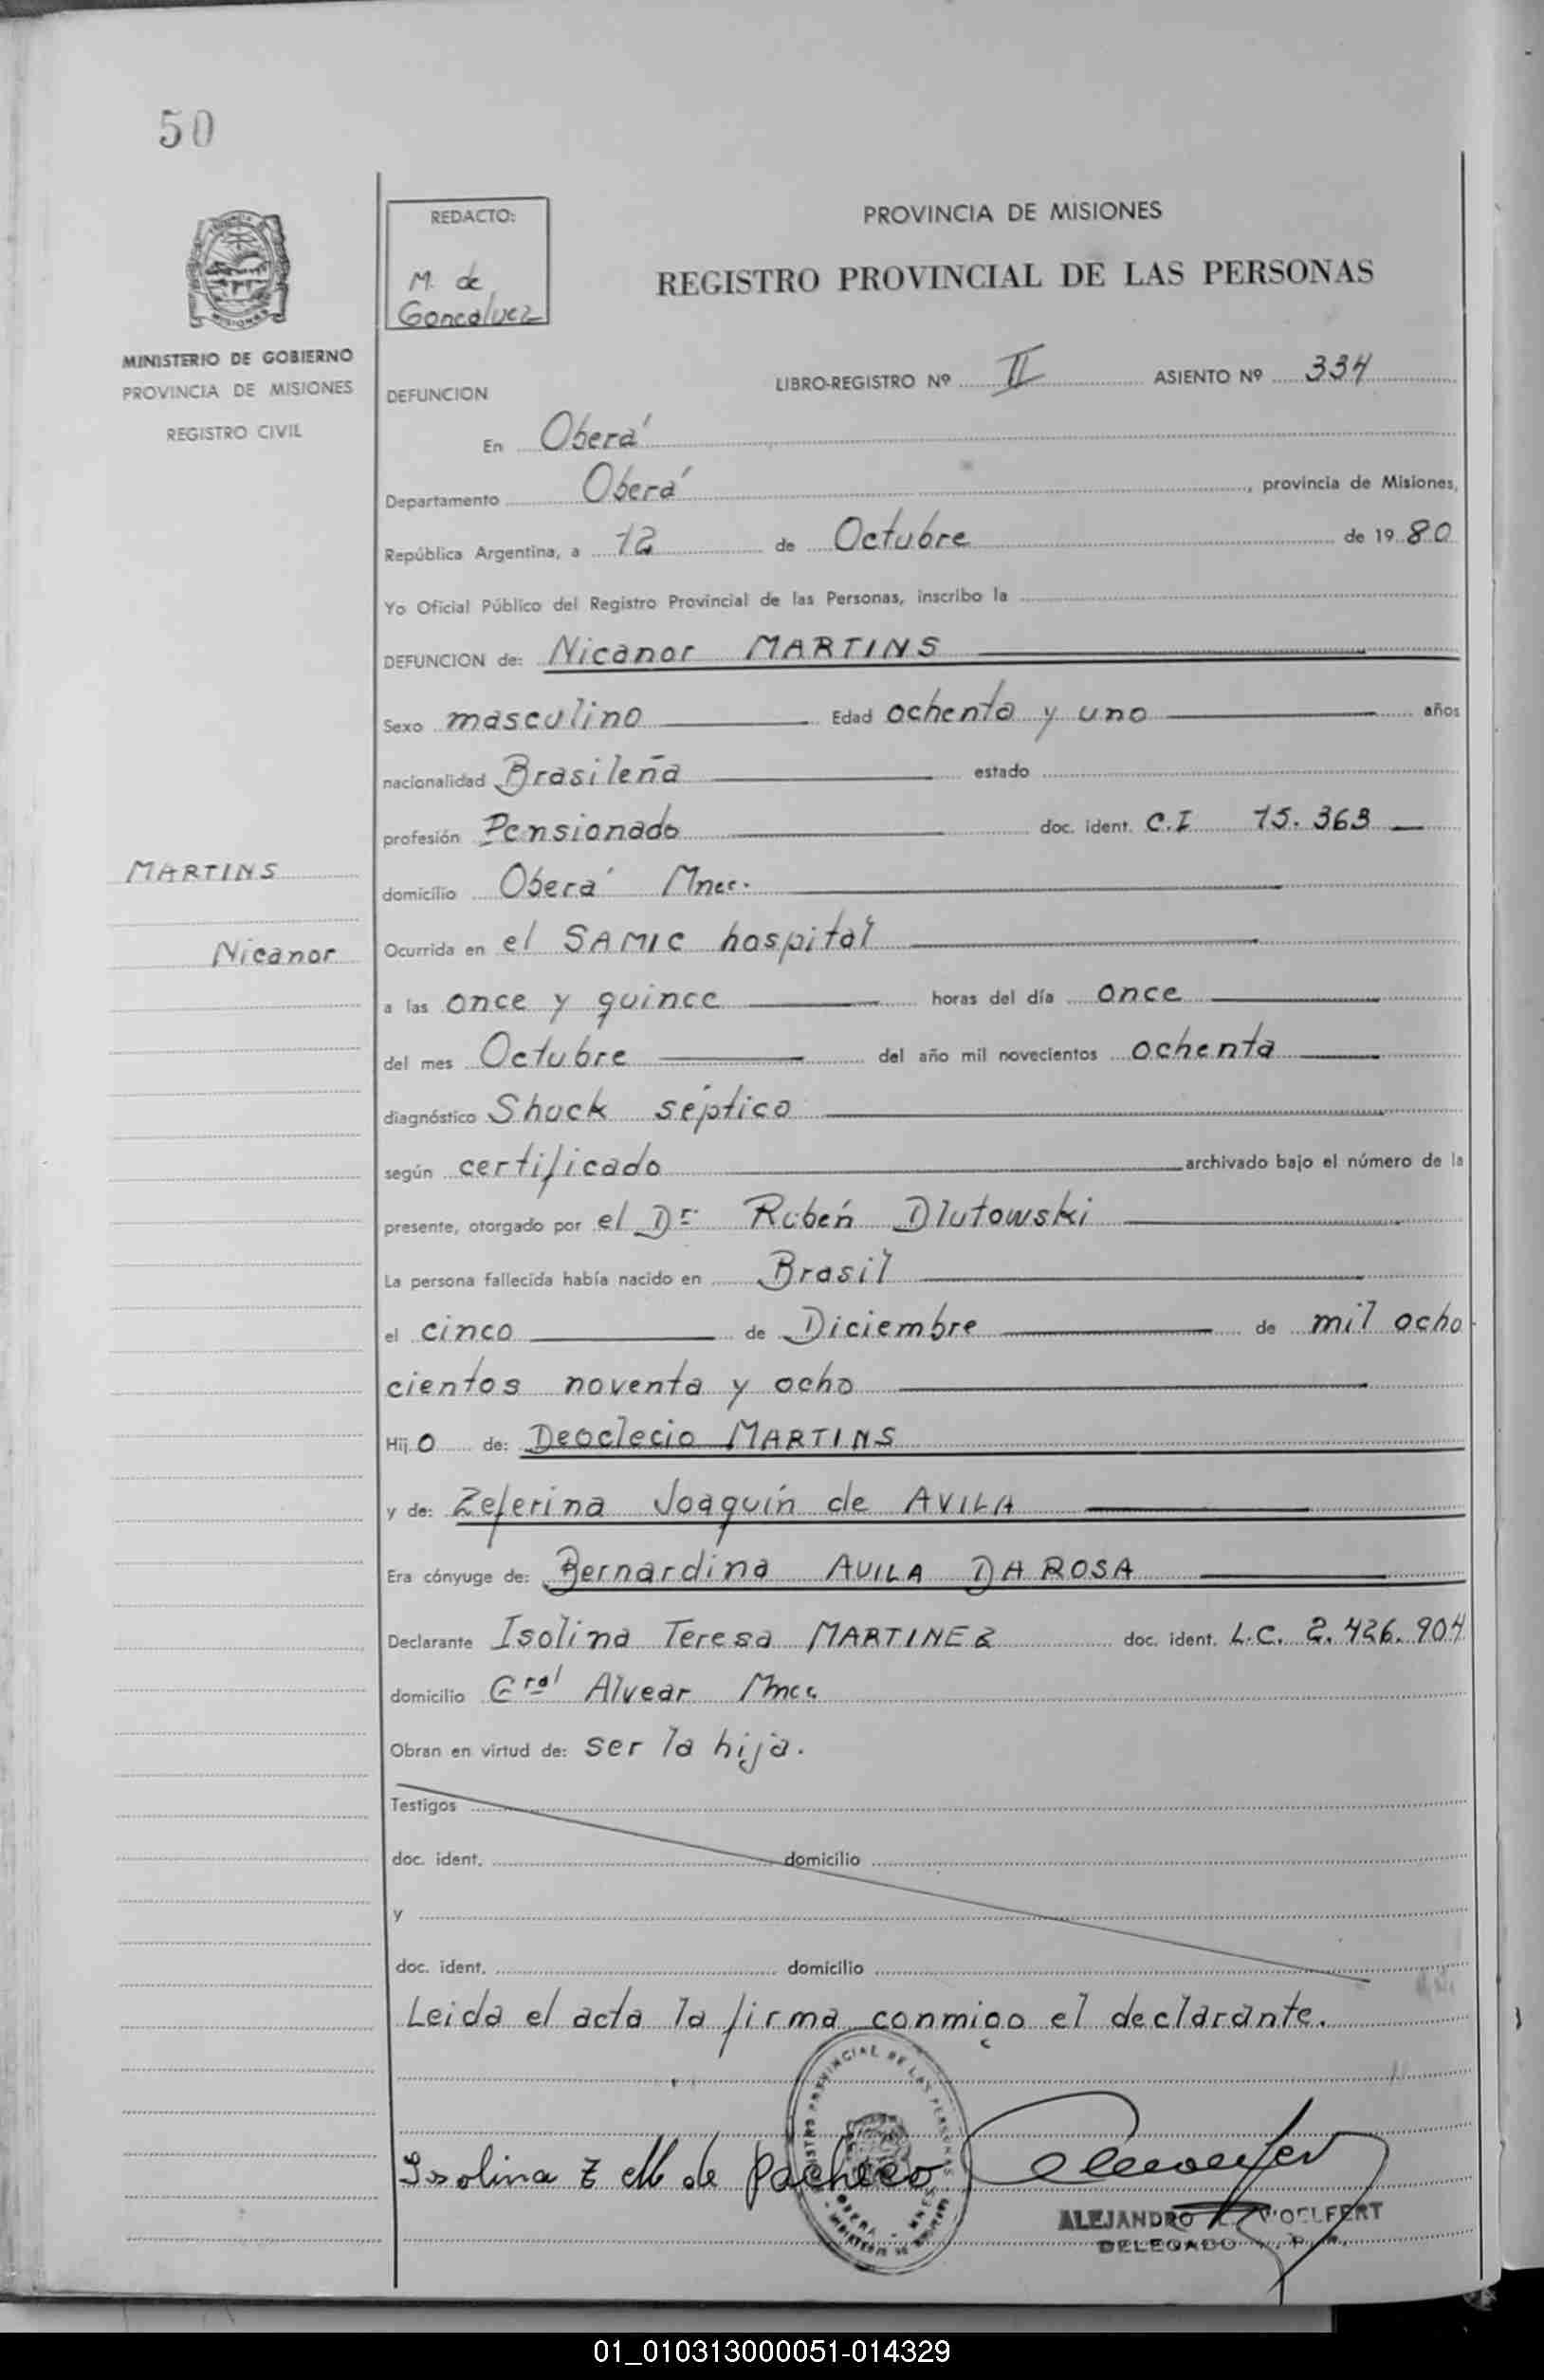 50
REDACTO:
M. de
Goncalvez
PROVINCIA DE MISIONES
REGISTRO PROVINCIAL DE LAS PERSONAS
MISIONES
MINISTERIO DE GOBIERNO
PROVINCIA DE MISIONES
REGISTRO CIVIL
DEFUNCION
LIBRO-REGISTRO Nº II ASIENTO Nº 334
En Oberá
Departamento Oberá, provincia de Misiones,
República Argentina, a 12 de Octubre de 1980
Yo Oficial Público del Registro Provincial de las Personas, inscribo la
DEFUNCION de: Nicanor MARTINS
Sexo masculino Edad ochenta y uno años
nacionalidad Brasileña estado
profesión Pensionado doc. ident. C.I 15.363
MARTINS
Nicanor
domicilio Oberá Mnes.
Ocurrida en el SAMIC hospital
a las once y quince horas del día once
del mes Octubre del año mil novecientos ochenta
diagnóstico Shock séptico
según certificado archivado bajo el número de la
presente, otorgado por el Dr Rubén Dlutowski
La persona fallecida había nacido en Brasil
el cinco de Diciembre de mil ocho
cientos noventa y ocho
Hijo de: Deoclecio MARTINS
y de: Zeferina Joaquín de AVILA
Era cónyuge de: Bernardina AVILA DA ROSA
Declarante Isolina Teresa MARTINEZ doc. ident. L.C. 2.426.904
domicilio Gral Alvear Mnes
Obran en virtud de: ser la hija.
Testigos
doc. ident. domicilio
y
doc. ident. domicilio
Leida el acta la firma conmigo el declarante.
Isolina T M de Pacheco
REGISTRO PROVINCIAL DE LAS PERSONAS
OBERA - MNES
ALEJANDRO WOELFERT
DELEGADO
01_010313000051-014329